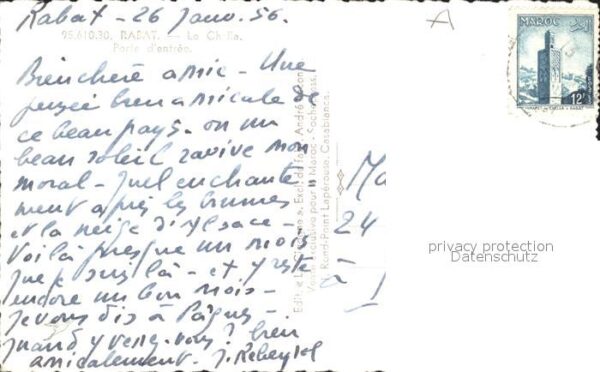 Rabat - 26 Janv. 56.
95.610.30. RABAT. — Le Chella.
Porte d'entrée.
Bien chère amie - Une
pensée bien amicale de
ce beau pays. où un
beau soleil ravive mon
moral - quel enchante
ment après les brumes
et la neige d'Alsace -
Voilà presque un mois
que je suis là - et y reste
encore un bon mois -
Je vous dis à Pâques -
quand y venez-vous? bien
amicalement - J.
MAROC
12F
24
à
Rond-Point Lapérouse, Casablanca.
privacy protection
Datenschutz